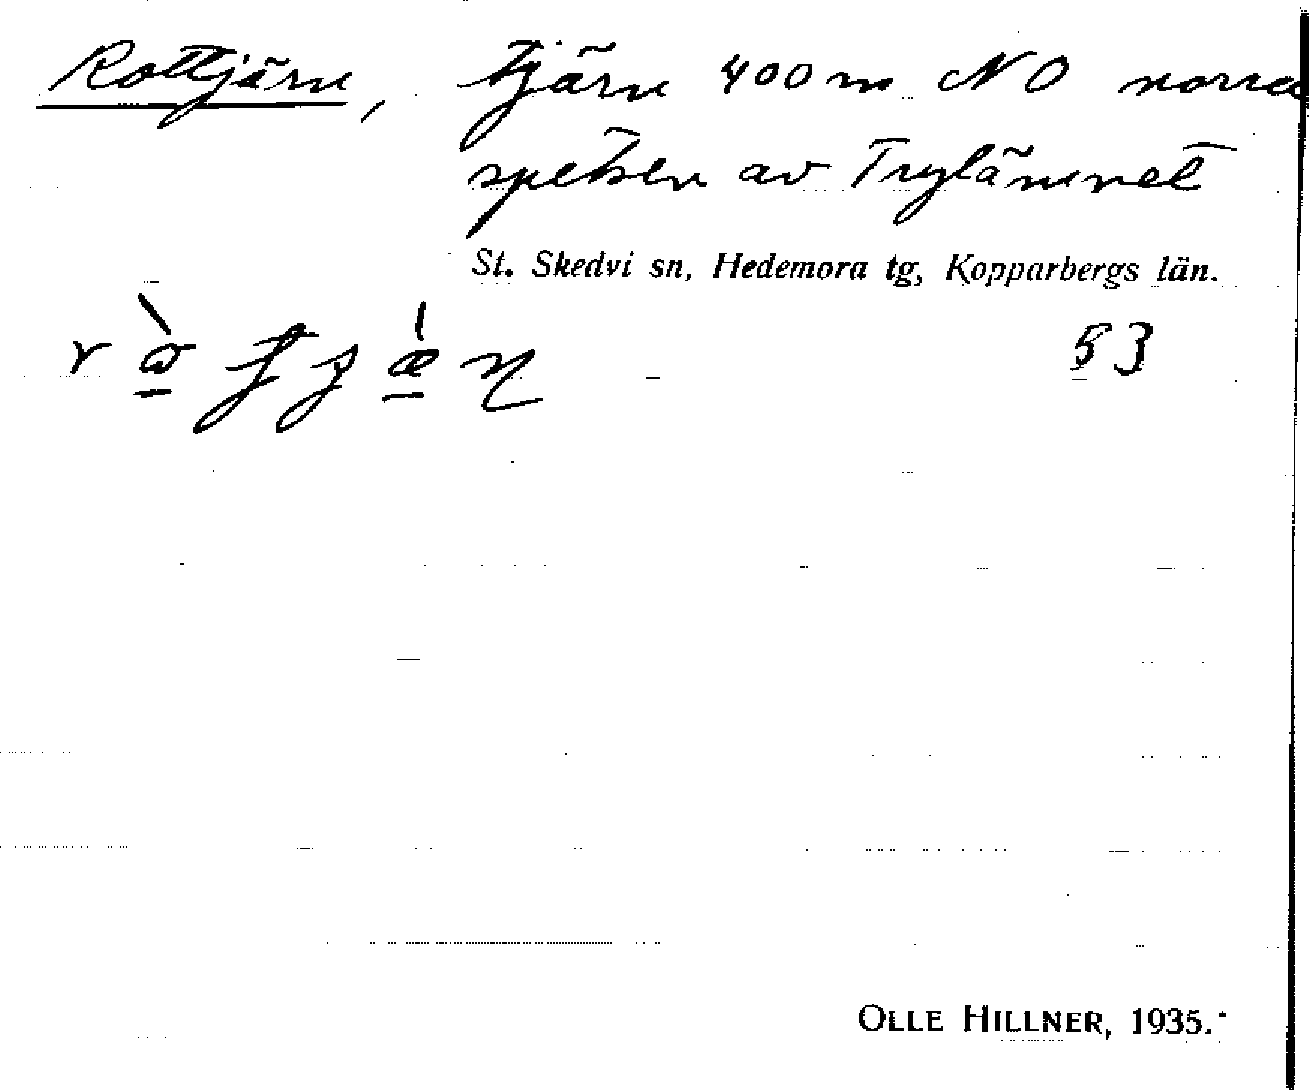 Rottjärn, tjärn 400 m NO norra
spetsen av Trylännet
St. Skedvi sn, Hedemora tg, Kopparbergs län.
53
OLLE HILLNER, 1935.